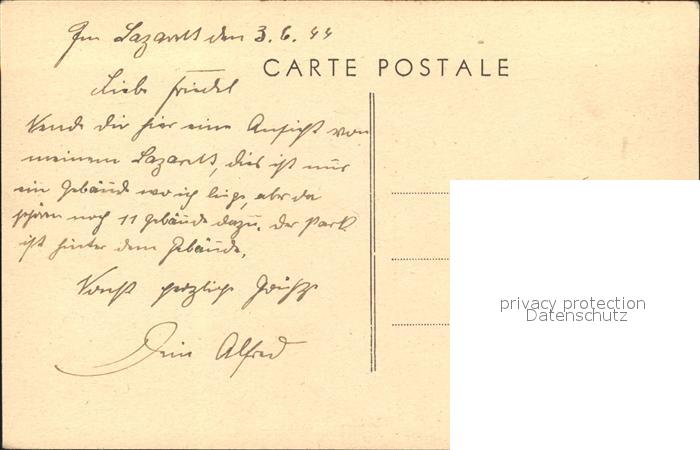 Im Lazarett den 3.6.44
CARTE POSTALE
Liebe Friedel
Sende dir hier eine Ansicht von
meinem Lazarett, dies ist nur
ein Gebäude wo ich liege, aber da
gehören noch 11 Gebäude dazu. Der Park
ist hinter dem Gebäude.
Sonst herzliche Grüße
Dein Alfred
privacy protection
Datenschutz